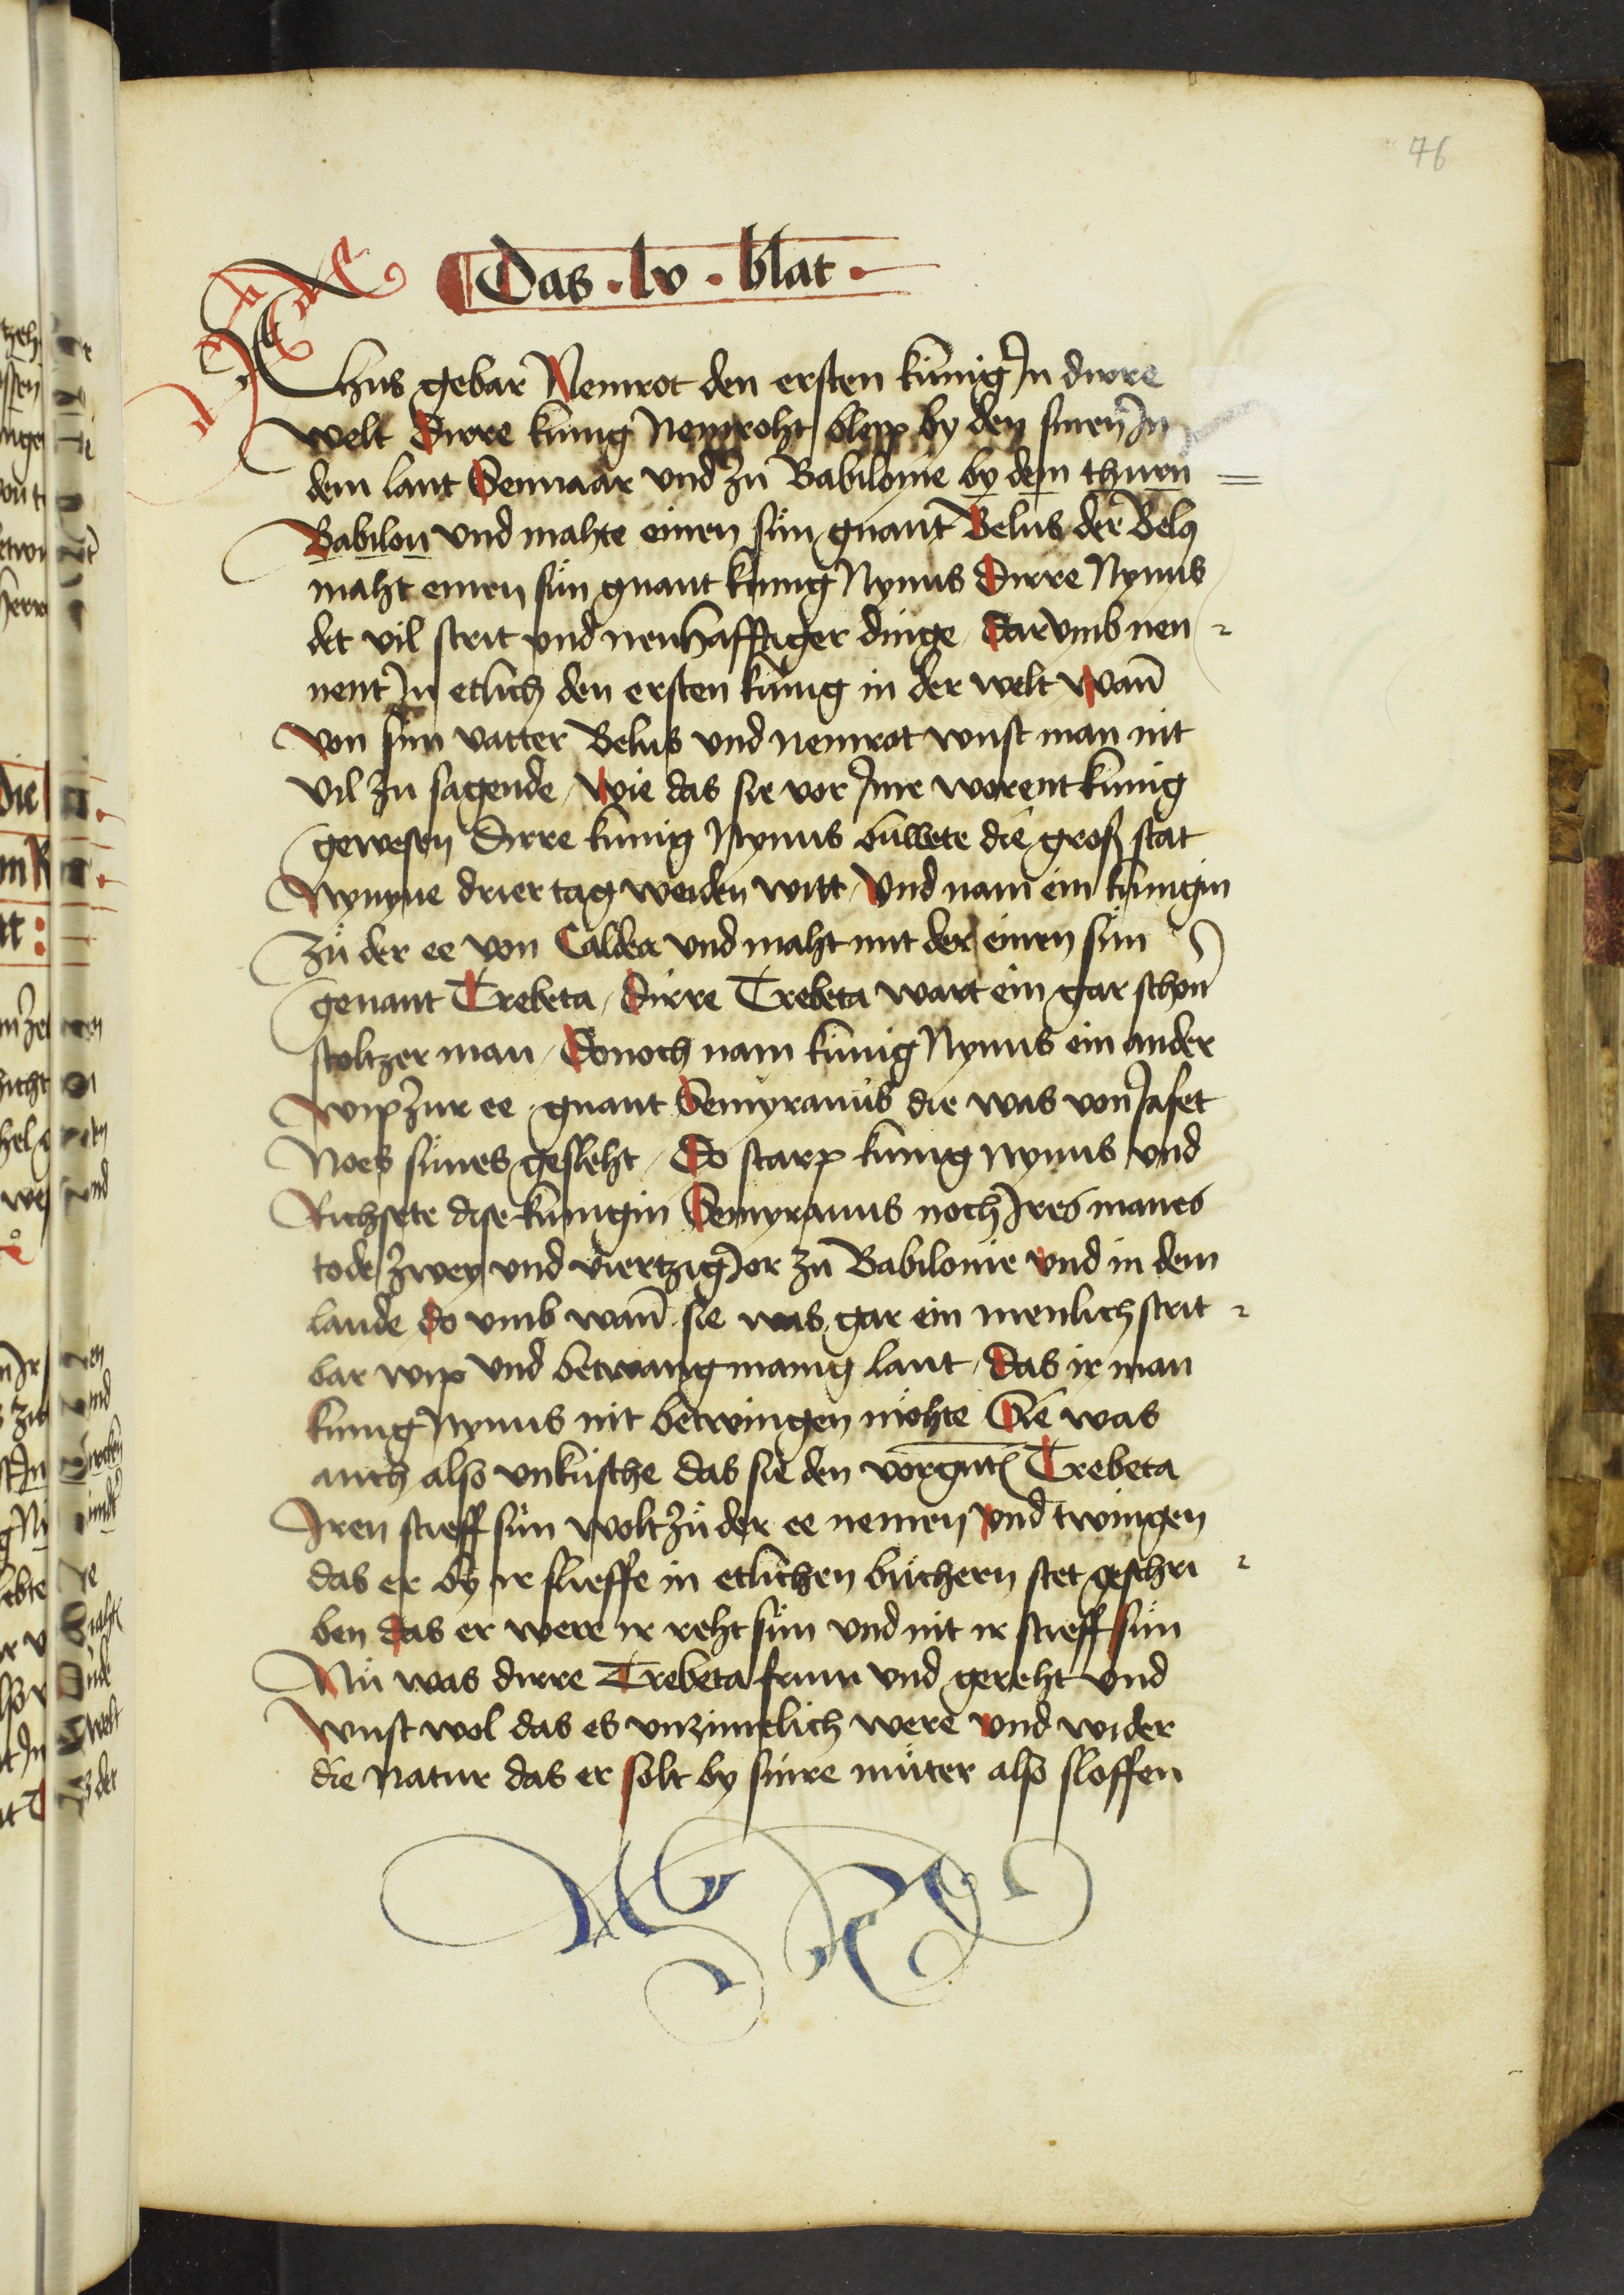 76
Das · lv · blat ·
Chus gebar Nemrot den ersten künig Jn dirre
welt Dirre künig Nemroht bleip by den sinen Jn
dem lant Sennaar vnd zü Babilonie by dem thurn =
Babilon vnd mahte einen sün gnant Belus der Belus
maht einen sün gnant künig Nynus Dirre Nynus
det vil strit vnd nenhafftiger dinge / Darvmb nen -
nent Jn etlich den ersten künig in der welt Wañ
von sim vatter Belus vnd nemrot wust man nit
vil zu sagende / Wie das sie vor Jme worent künig
gewesen Dirre künig Nynus buwete die groß stat
Nynyue drier tag weiden witt / Vnd nam ein künigin
Zü der ee von Caldea vnd maht mit der einen sün
genant Trebeta / Dirre Trebeta wart ein gar schon
stoltzer man / Donoch nam künig Nynus ein ander
wip zur ee gnant Semyramis die was von Jafet
Noes sünes gesleht / Do starp künig nynus vnd
Richsete dise künigin Semyramis noch Jres manes
tode zwey vnd viertzig Jor zü Babilonie vnd in dem
lande do vmb wañ sie was gar ein menlich strit -
bar wip vnd betwang manig lant / das ir man
künig Nynus nit betwingen möhte Sie was
auch also vnküsche das sie den vorgnt Trebeta
Jren stieff sün wolt zü der ee nemen vnd twingen
das er by ir slieffe in etlichen büchern stet geschri -
ben das er were ir reht sün vnd nit ir stieff sün
Nü was dirre Trebeta frum vnd gereht vnd
wust wol das es vnzimelich were vnd wider
die Natur das er solt by sinre müter also sloffen